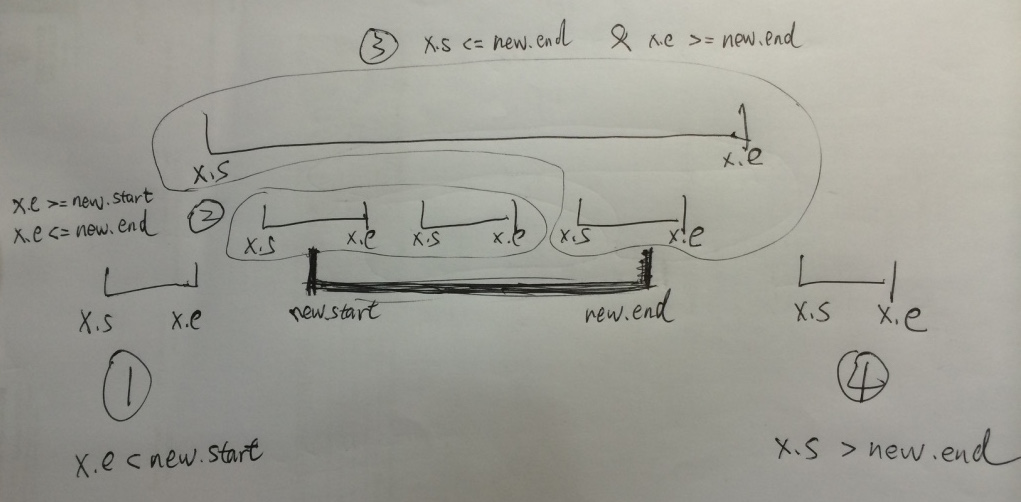 ③ x.s <= new.end & x.e >= new.end
x.s
x.e
x.e >= new.start
x.e <= new.end
②
x.s x.e x.s x.e x.s x.e
x.s x.e
new.start
new.end
x.s x.e
①
④
x.e < new.start
x.s > new.end